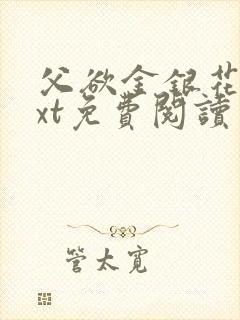 父欲金銀花
xt免費閱讀
管太寬